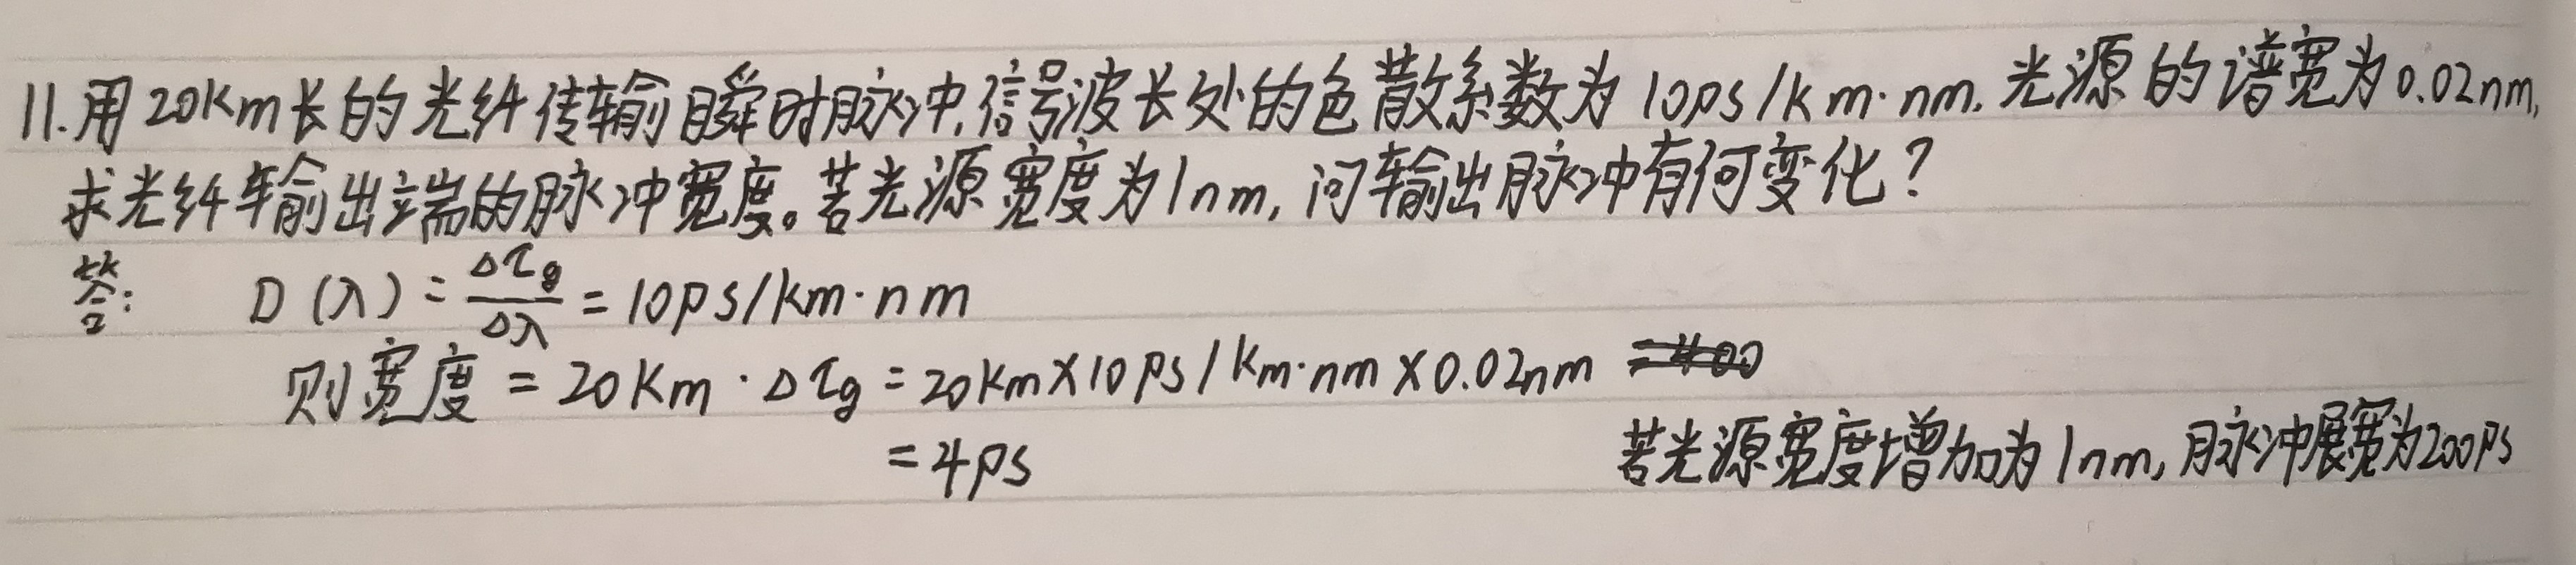 11.用20Km长的光纤传输瞬时脉冲,信号波长处的色散系数为10ps/km·nm.光源的谱宽为0.02nm,
求光纤输出端的脉冲宽度。若光源宽度为1nm,问输出脉冲有何变化?
答: D(λ)=Δτg/Δλ=10ps/km·nm
则宽度=20Km·Δτg=20km×10ps/km·nm×0.02nm
=4ps 若光源宽度增加为1nm,脉冲展宽为200ps